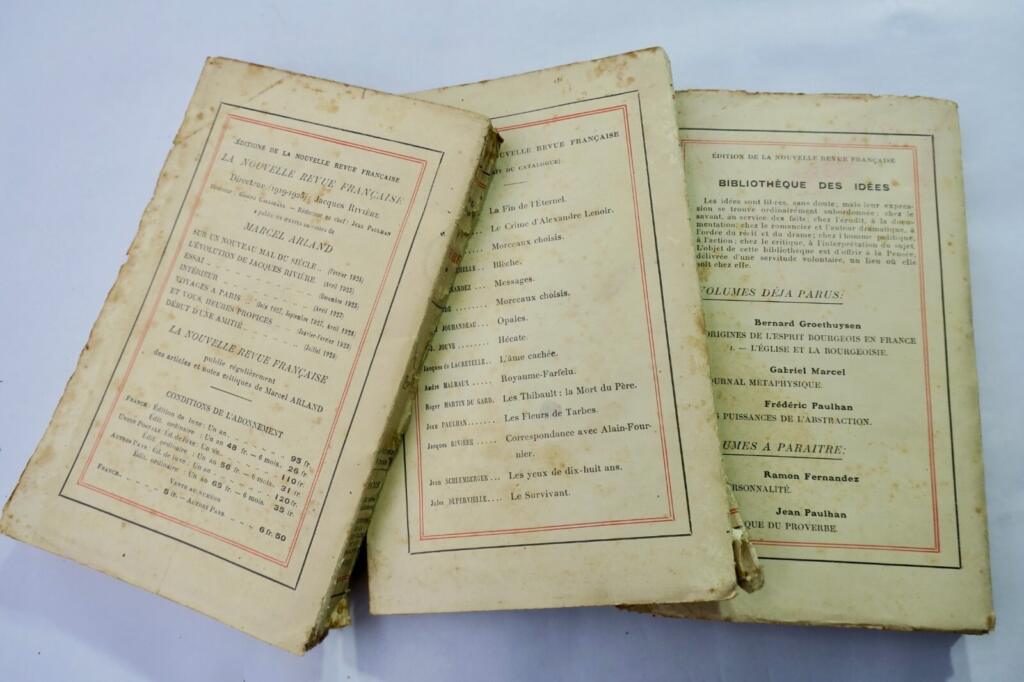 ÉDITIONS DE LA NOUVELLE REVUE FRANÇAISE
LA NOUVELLE REVUE FRANÇAISE
Directeur (1919-1925) : Jacques RIVIÈRE
Directeur : GASTON GALLIMARD — Rédacteur en chef : JEAN PAULHAN
a publié
MARCEL ARLAND
SUR UN NOUVEAU MAL DU SIÈCLE
L'ÉVOLUTION DE JACQUES RIVIÈRE. (Avril 1925)
ESSAI (Décembre 1925)
INTÉRIEUR (Avril 1925)
VOYAGES A PARIS (Juin 1927, Septembre 1927, Avril 1928)
ET VOUS, HEURES PROPICES (Janvier-Février 1928)
DÉBUT D'UNE AMITIÉ (Juillet 1928)
LA NOUVELLE REVUE FRANÇAISE
publie régulièrement
des articles et notes critiques de Marcel ARLAND
CONDITIONS DE L'ABONNEMENT
FRANCE : Édition de luxe: Un an 95 fr.
Édit. ordinaire : Un an 48 fr. — 6 mois. 26 fr.
UNION POSTALE : Éd. de luxe : Un an. 110 fr.
Édit. ordinaire : Un an 56 fr. — 6 mois. 31 fr.
AUTRES PAYS : Éd. de luxe : Un an 120 fr.
Édit. ordinaire : Un an 65 fr. — 6 mois. 35 fr.
VENTE AU NUMÉRO
FRANCE 5 fr. — AUTRES PAYS 6 fr. 50
NOUVELLE REVUE FRANÇAISE
DU CATALOGUE)
La Fin de l'Éternel.
Le Crime d'Alexandre Lenoir.
Morceaux choisis.
Blèche.
Messages.
Morceaux choisis.
JOUHANDEAU... Opales.
JOUVE Hécate.
Jacques DE LACRETELLE.. L'âme cachée.
André MALRAUX Royaume-Farfelu.
Roger MARTIN DU GARD. Les Thibault : la Mort du Père.
Jean PAULHAN Les Fleurs de Tarbes.
Jacques RIVIÈRE Correspondance avec Alain-Four-
nier.
Jean SCHLUMBERGER... Les yeux de dix-huit ans.
Jules SUPERVIELLE.... Le Survivant.
ÉDITION DE LA NOUVELLE REVUE FRANÇAISE
BIBLIOTHÈQUE DES IDÉES
Les idées sont libres, sans doute; mais leur expres-
sion se trouve ordinairement subordonnée: chez le
savant, au service des faits; chez l'érudit, à la docu-
mentation; chez le romancier et l'auteur dramatique, à
l'ordre du récit et du drame; chez l'homme politique,
à l'action; chez le critique, à l'interprétation du sujet
L'objet de cette bibliothèque est d'offrir à la Pensée,
délivrée d'une servitude volontaire, un lieu où elle
soit chez elle.
VOLUMES DÉJA PARUS:
Bernard Groethuysen
ORIGINES DE L'ESPRIT BOURGEOIS EN FRANCE
I. — L'ÉGLISE ET LA BOURGEOISIE.
Gabriel Marcel
JOURNAL MÉTAPHYSIQUE.
Frédéric Paulhan
PUISSANCES DE L'ABSTRACTION.
UMES A PARAITRE:
Ramon Fernandez
ERSONNALITÉ.
Jean Paulhan
QUE DU PROVERBE.